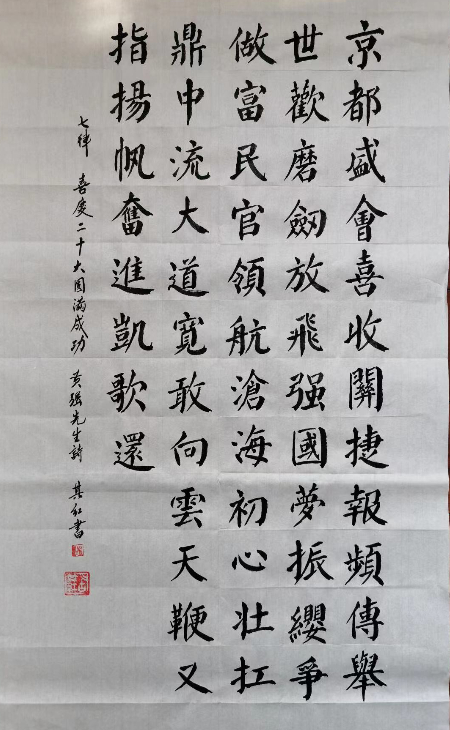 京都盛會喜收關捷報頻傳舉
世歡磨劔放飛强國夢振纓爭
做富民官領航滄海初心壯扛
鼎中流大道寬敢向雲天鞭又
指揚帆奮進凱歌還
七律 喜慶二十大圆满成功 黄强先生詩 其红書